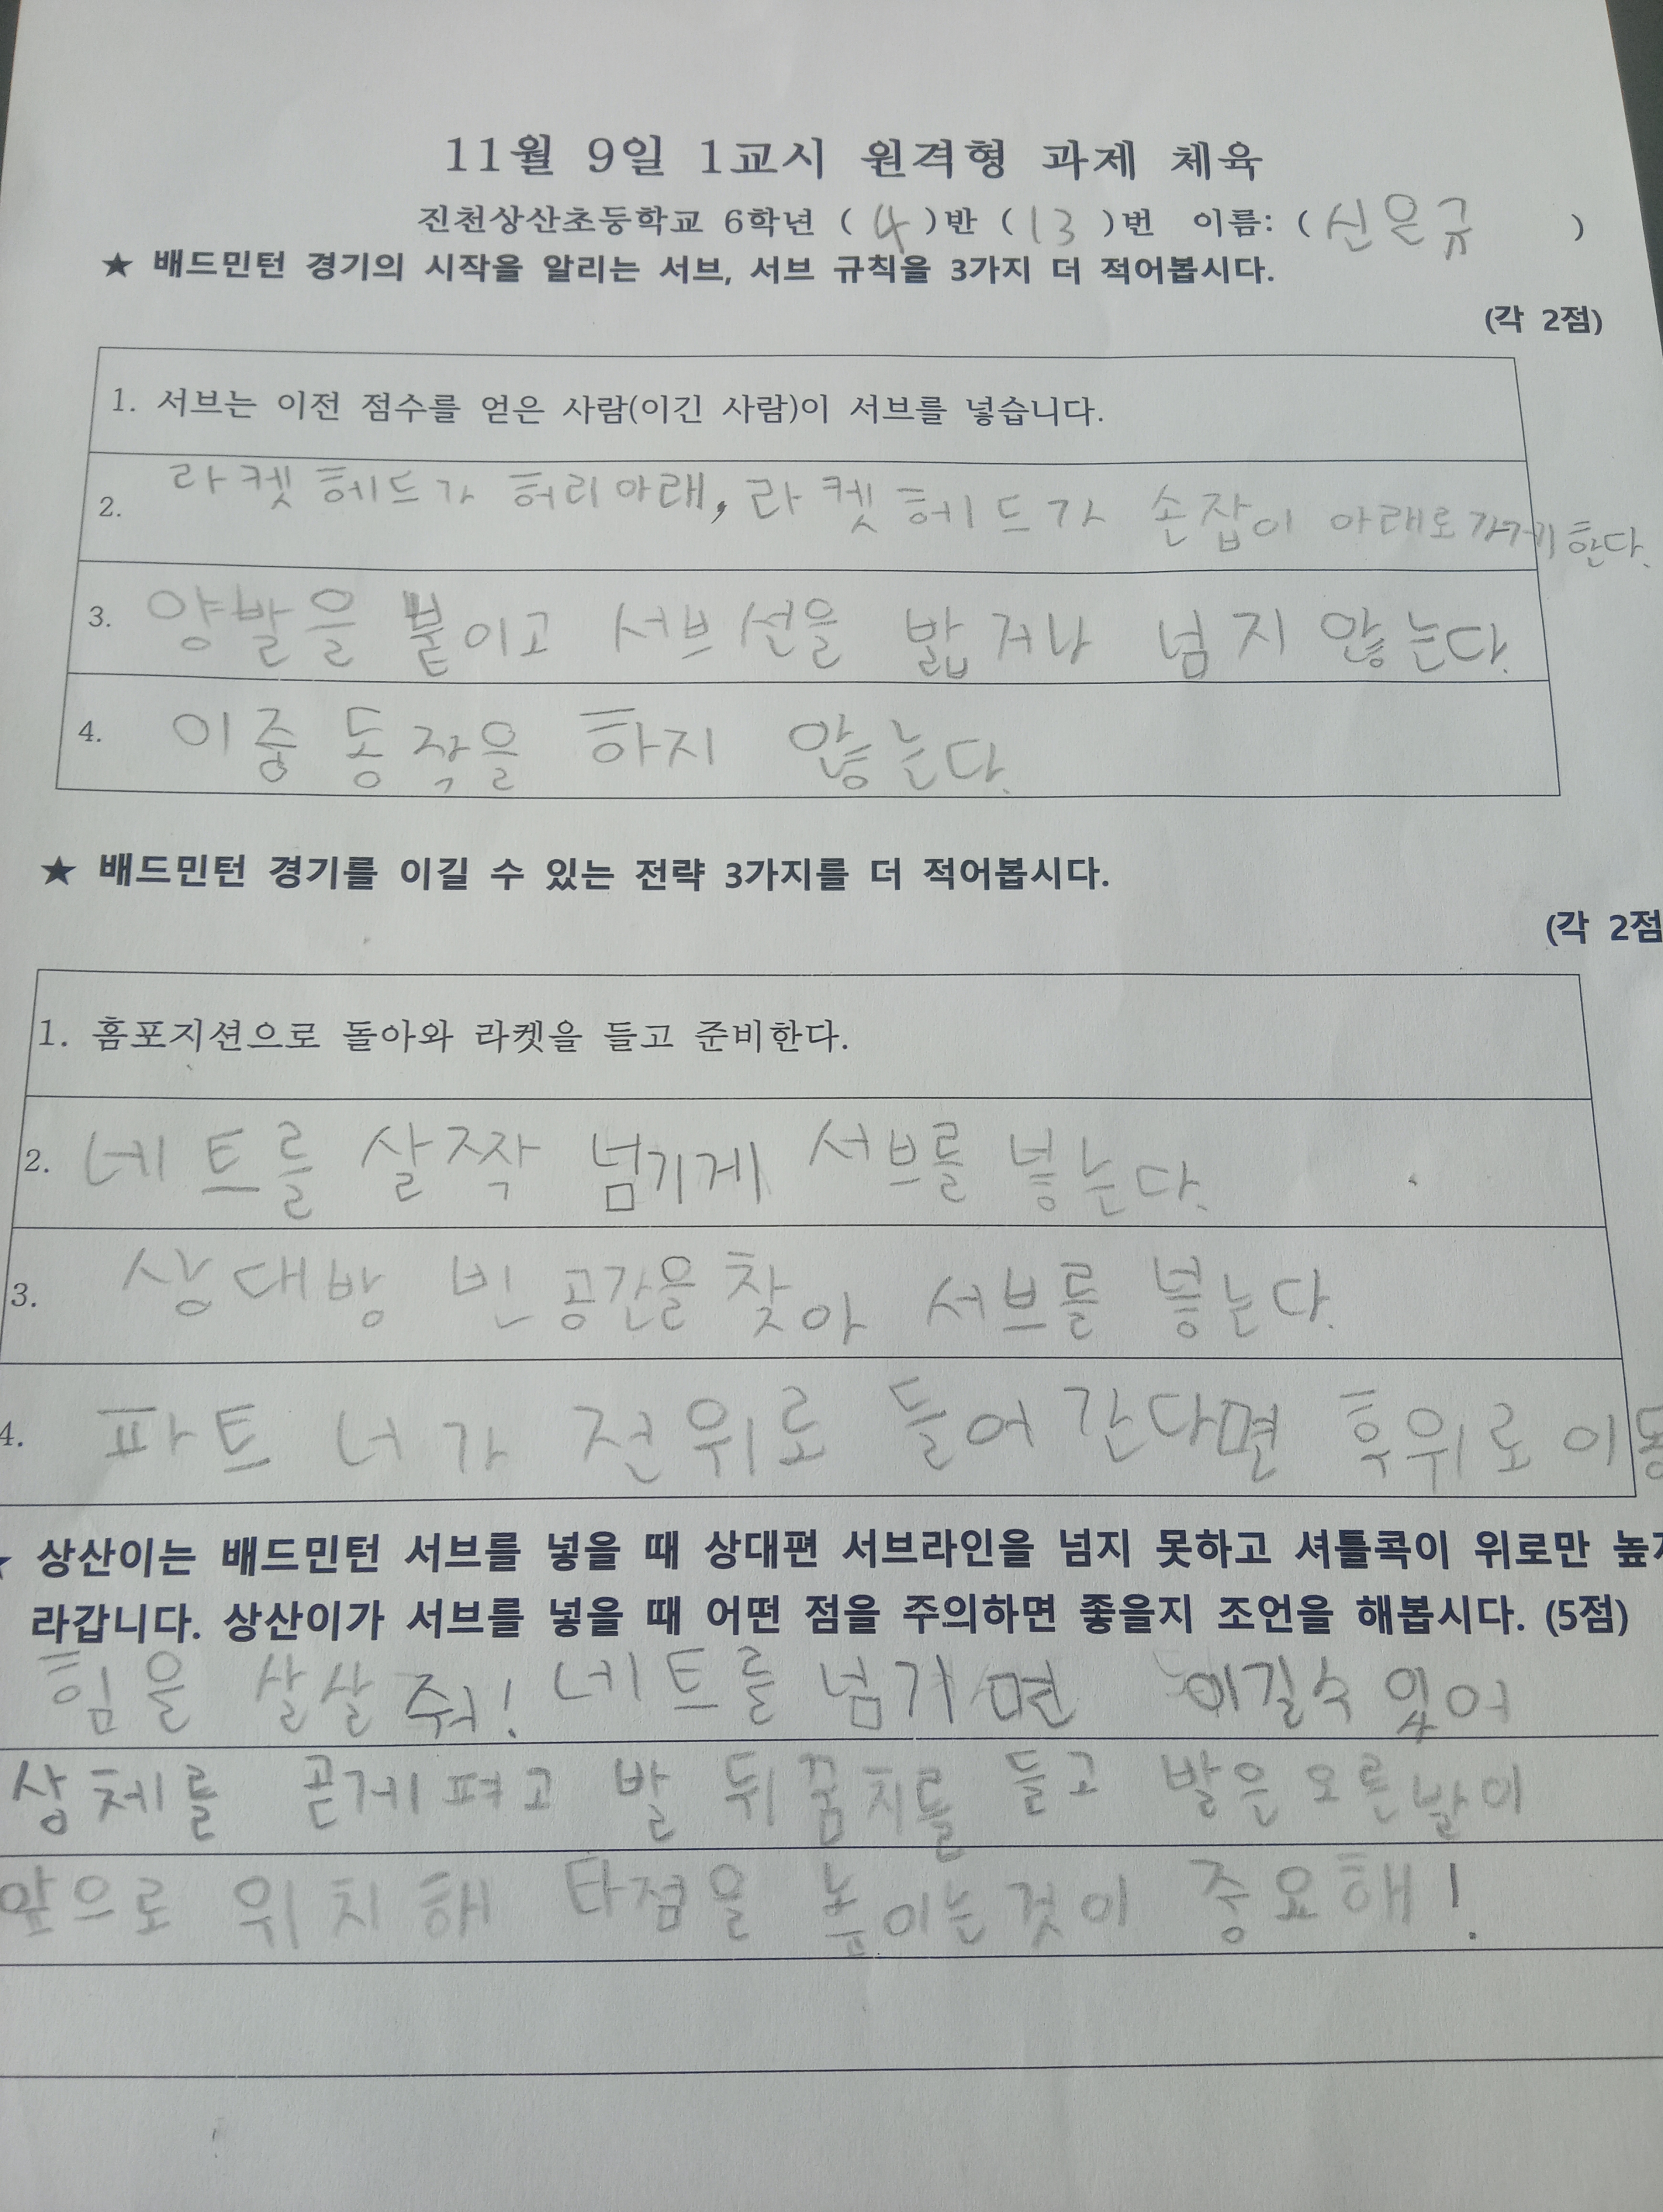 11월 9일 1교시 원격형 과제 체육
진천상산초등학교 6학년 ( 4 )반 ( 13 )번 이름: ( 신은규 )
★ 배드민턴 경기의 시작을 알리는 서브, 서브 규칙을 3가지 더 적어봅시다.
(각 2점)
1. 서브는 이전 점수를 얻은 사람(이긴 사람)이 서브를 넣습니다.
2. 라켓 헤드가 허리아래, 라켓 헤드가 손잡이 아래로 가게 한다.
3. 양발을 붙이고 서브 선을 밟거나 넘지 않는다.
4. 이중 동작을 하지 않는다.
★ 배드민턴 경기를 이길 수 있는 전략 3가지를 더 적어봅시다.
(각 2점
1. 홈포지션으로 돌아와 라켓을 들고 준비한다.
2. 네트를 살짝 넘기게 서브를 넣는다.
3. 상대방 빈 공간을 찾아 서브를 넣는다.
4. 파트너가 전위로 들어간다면 후위로 이동
★ 상산이는 배드민턴 서브를 넣을 때 상대편 서브라인을 넘지 못하고 셔틀콕이 위로만 높
라갑니다. 상산이가 서브를 넣을 때 어떤 점을 주의하면 좋을지 조언을 해봅시다. (5점)
힘을 살살 줘! 네트를 넘기면 이길수 있어
상체를 곧게 펴고 발 뒤꿈치를 들고 발은 오른발이
앞으로 위치해 타점을 높이는것이 중요해!